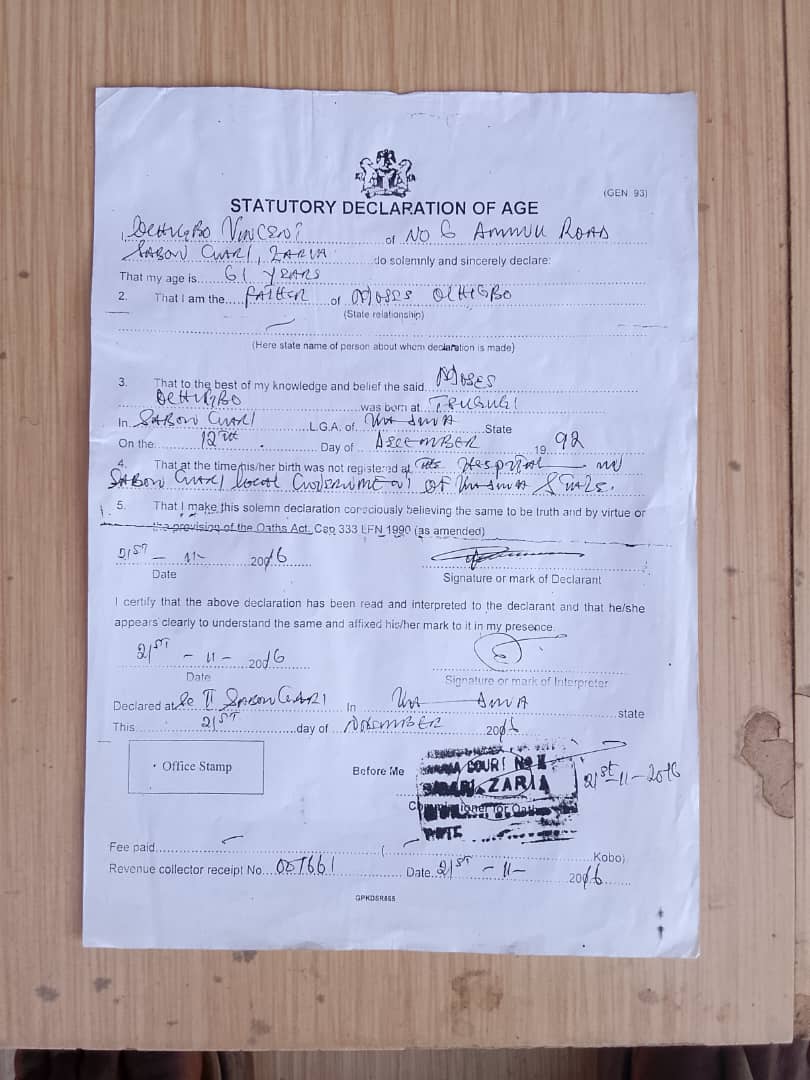 (GEN 93)
STATUTORY DECLARATION OF AGE
I, OCHIGBO VINCENT of NO 6 AMMUU ROAD
SABON GARI, ZARIA do solemnly and sincerely declare:
That my age is 61 YEARS
2. That I am the FATHER of MOSES OCHIGBO
(State relationship)
(Here state name of person about whom declaration is made)
3. That to the best of my knowledge and belief the said MOSES
OCHIGBO was born at
In SABON GARI L.G.A. of KADUNA State
On the 12TH Day of DECEMBER 1992
4. That at the time his/her birth was not registered at the Hospital
SABON GARI LOCAL GOVERNMENT OF KADUNA STATE.
5. That I make this solemn declaration consciously believing the same to be truth and by virtue or
the provision of the Oaths Act, Cap 333 LFN 1990 (as amended)
21ST - 11 - 2016
Date Signature or mark of Declarant
I certify that the above declaration has been read and interpreted to the declarant and that he/she
appears clearly to understand the same and affixed his/her mark to it in my presence.
21ST - 11 - 2016
Date Signature or mark of Interpreter
Declared at SC II SABON GARI In KADUNA state
This 21ST day of NOVEMBER 2016
• Office Stamp
Before Me
SHARIA COURT NO II
ZARIA
Commissioner for Oaths
DATE
21st-11-2016
Fee paid ( Kobo)
Revenue collector receipt No. 007661 Date 21ST - 11 - 2016
GPKDSR865